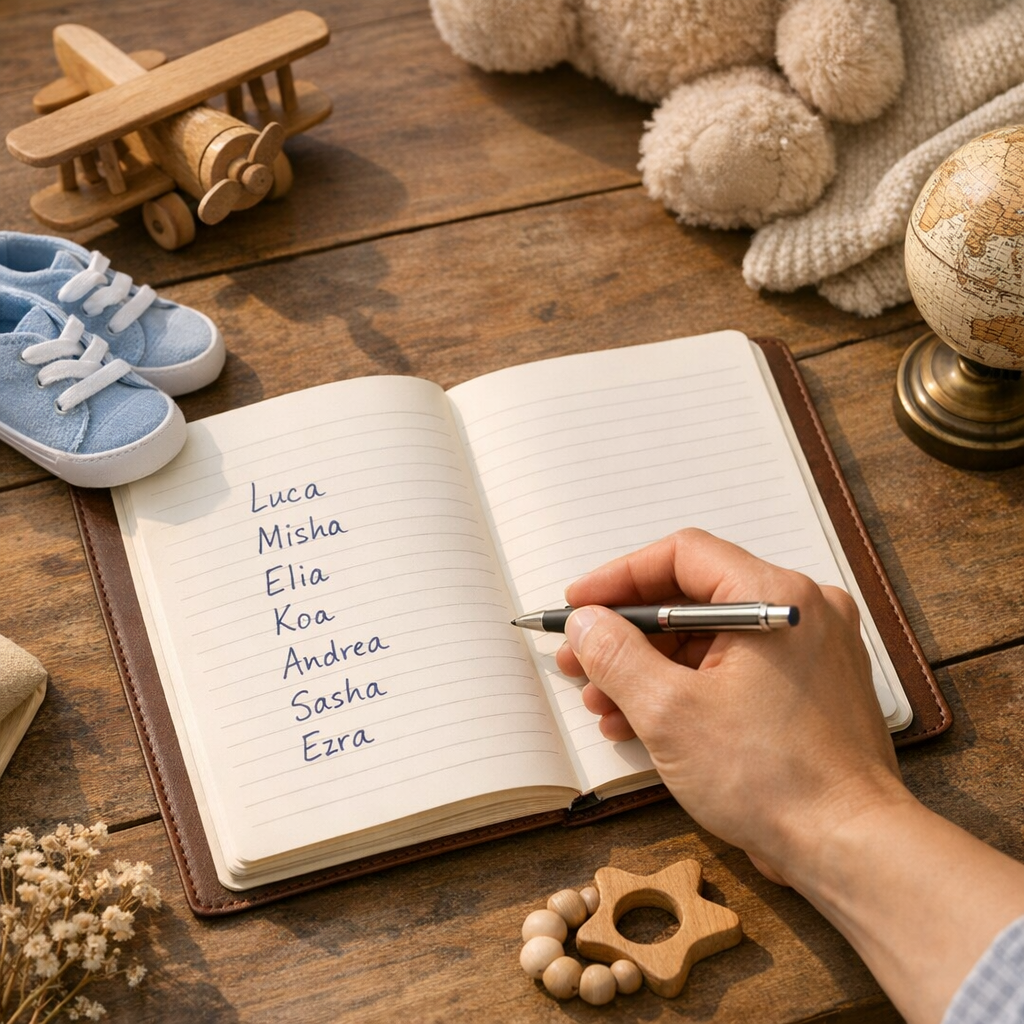 Luca
Misha
Elia
Koa
Andrea
Sasha
Ezra